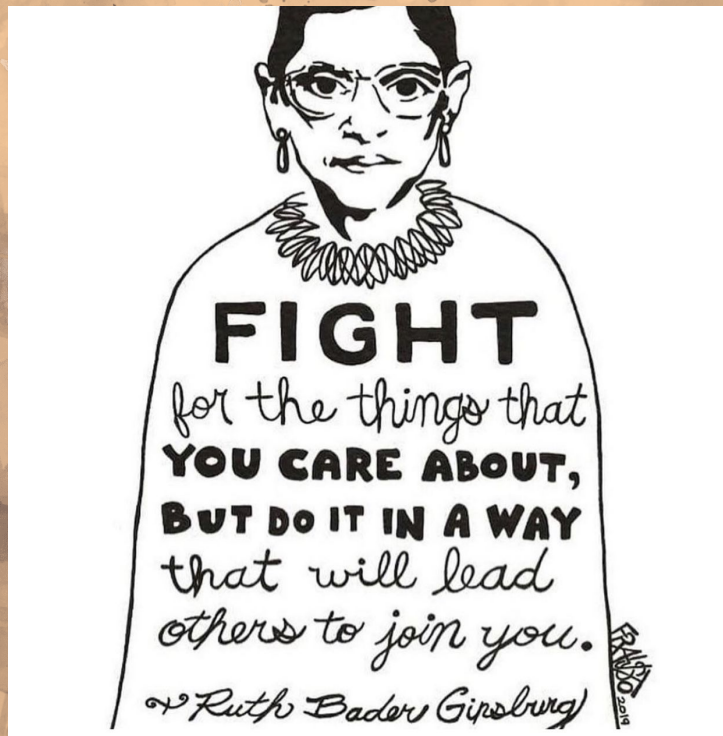 FIGHT
for the things that
YOU CARE ABOUT,
BUT DO IT IN A WAY
that will lead
others to join you.
Ruth Bader Ginsburg
FRAUSTO
2019